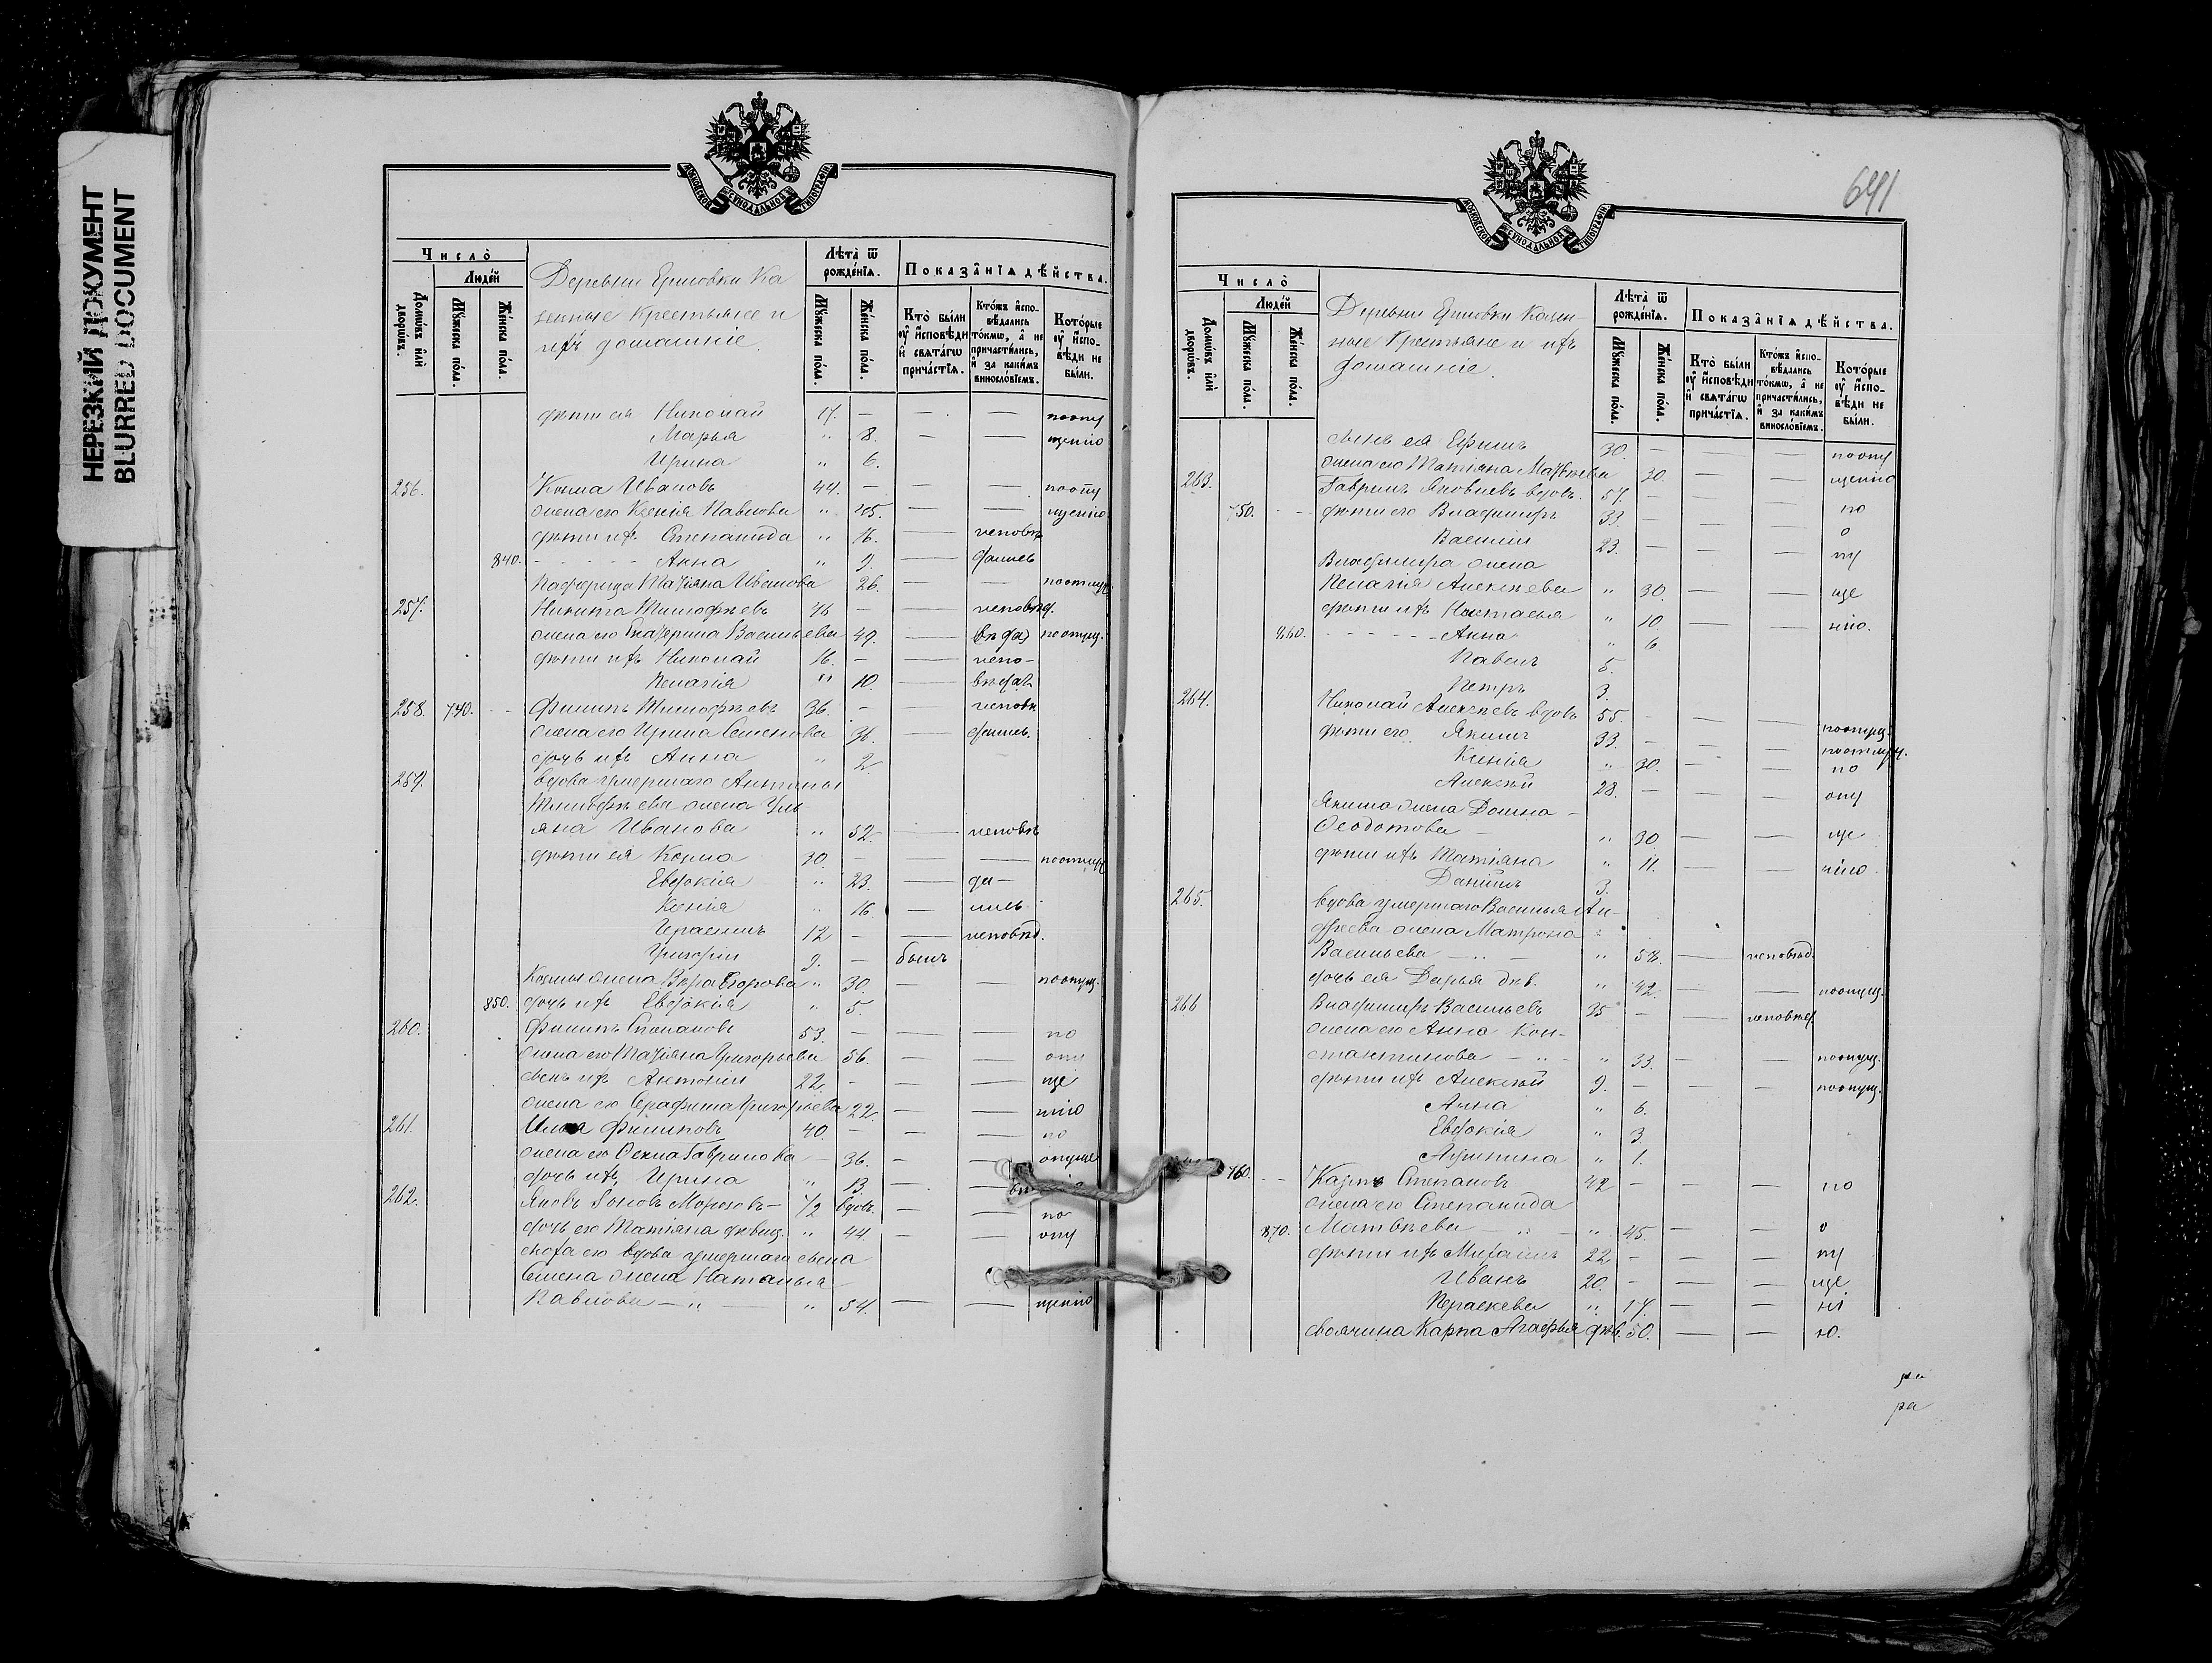 НЕРЕЗКИЙ ДОКУМЕНТ
BLURRED DOCUMENT
МОСКОВСКОЙ СѴНОДАЛЬНОЙ ТИПОГРАФІИ
Число̀
Людей
Домѡвъ и҆лѝ дворѡвъ.
Мꙋжеска пола.
Женска пола.
Деревни Ершовки Ка
зенные Крестьяне и
ихъ домашніе.
Лѣта ѿ рожденїѧ.
Мꙋжеска пола.
Женска пола.
Показанїѧ дѣйства.
Кто̀ были оу҆ и҆сповѣди и҆ свѧтагѡ причастїѧ.
Ктожъ и҆сповѣдались токмѡ, а҆ не причастились, и҆ за какимъ винословїемъ.
Которые оу҆ и҆сповѣди не были.
дѣти ея Николай 17. — — — поопу
Марья " 8. — — щенію
Ирина " 6.
256. Косма Ивановъ 44. — — — поопу
жена его Ксенія Павлова " 45. — — щенію.
дѣти ихъ Степанида " 16. — исповѣ
840. Анна " 9. — дались
падчерица Татіяна Иванова 26. — — поопущ.
257. Никита Тимофѣевъ 46 — — исповѣд.
жена его Екатерина Васильева 49. — поопущ.
дѣти ихъ Николай 16. — — испо-
Пелагія " 10. — вѣдал
258. 740. Филипъ Тимофѣевъ 36. — исповѣ
жена его Ирина Семенова 36. — дались.
дочь ихъ Анна " 2.
259. вдова умершаго Антипы
Тимофѣева жена Уль
яна Иванова " 52. — исповѣ
дѣти ея Косма 30. — — — поопущ
Евдокія " 23. — да—
Ксенія " 16. — лись.
Герасимъ 12 — — исповѣд.
Григорій 9. — былъ
Космы жена Вѣра Егорова " 30. — — поопущ.
850. дочь ихъ Евдокія " 5.
260. Филипъ Степановъ 53. — — — по
жена его Татіяна Григорьева 56. — — опу
сынъ ихъ Антоній 22. — — — ще
жена его Серафима Григорьева 22. — — нію
261. Илья Филиповъ 40. — — — по
жена его Гаврилова — 36. — — опуще
дочь ихъ Ирина " 13. — —
262. Яковъ Іоновъ Морозовъ — 72 вдовъ. — — по
дочь его Татіяна дѣвиц. " 44 — — опу
сноха его вдова умершаго сына
Семена жена Наталья
Павлова — " — " 54. — — щенію
641
МОСКОВСКОЙ СѴНОДАЛЬНОЙ ТИПОГРАФІИ
Число̀
Людей
Домѡвъ и҆лѝ дворѡвъ.
Мꙋжеска пола.
Женска пола.
Деревни Ершовки Казен-
ные Крестьяне и ихъ
домашніе.
Лѣта ѿ рожденїѧ.
Мꙋжеска пола.
Женска пола.
Показанїѧ дѣйства.
Кто̀ были оу҆ и҆сповѣди и҆ свѧтагѡ причастїѧ.
Ктожъ и҆сповѣдались токмѡ, а҆ не причастились, и҆ за какимъ винословїемъ.
Которые оу҆ и҆сповѣди не были.
сынъ ея Ефимъ 30. — — — поопу
жена его Татіяна Матвѣева 30. — — щенію
263. Гаврилъ Яковлевъ вдовъ. 57. — — —
750. дѣти его Владимиръ 33. — — — по
Василій 23. — — — о
Владимира жена пу
Пелагія Алексѣева " 30. — — ще
дѣти ихъ Настасья " 10. — — нію.
860. Анна " 6.
Павелъ 5.
Петръ 3.
264. Николай Алексѣевъ вдовъ 55. — — — поопущ.
дѣти его Якимъ 33. — — — поопущ.
Ксенія " 30. — — по
Алексѣй 28. — — — опу
Якима жена Домна —
Ѳеодотова — " 30. — — ще
дѣти ихъ Татіяна " 11. — — нію
Даніилъ 3.
265. вдова умершаго Василья Ан-
дреева жена Матрона
Васильева — " — " 58. — исповѣд.
дочь ея Дарья дѣв. " 42. — — поопущ.
266 Владимиръ Васильевъ 35 — — исповѣд.
жена его Анна Кон-
стантинова — " — " 33. — — поопущ.
дѣти ихъ Алексѣй 9. — — — поопущ.
Анна " 6.
Евдокія " 3.
Акулина " 1.
760. Карпъ Степановъ 42 — — — по
жена его Степанида
870. Матвѣева — " 45. — — о
дѣти ихъ Михаилъ 22 — — — пу
Иванъ 20. — — — ще
Параскева " 17. — — ні
своячина Карпа Агафья дѣв. 50. — — ю.
ра